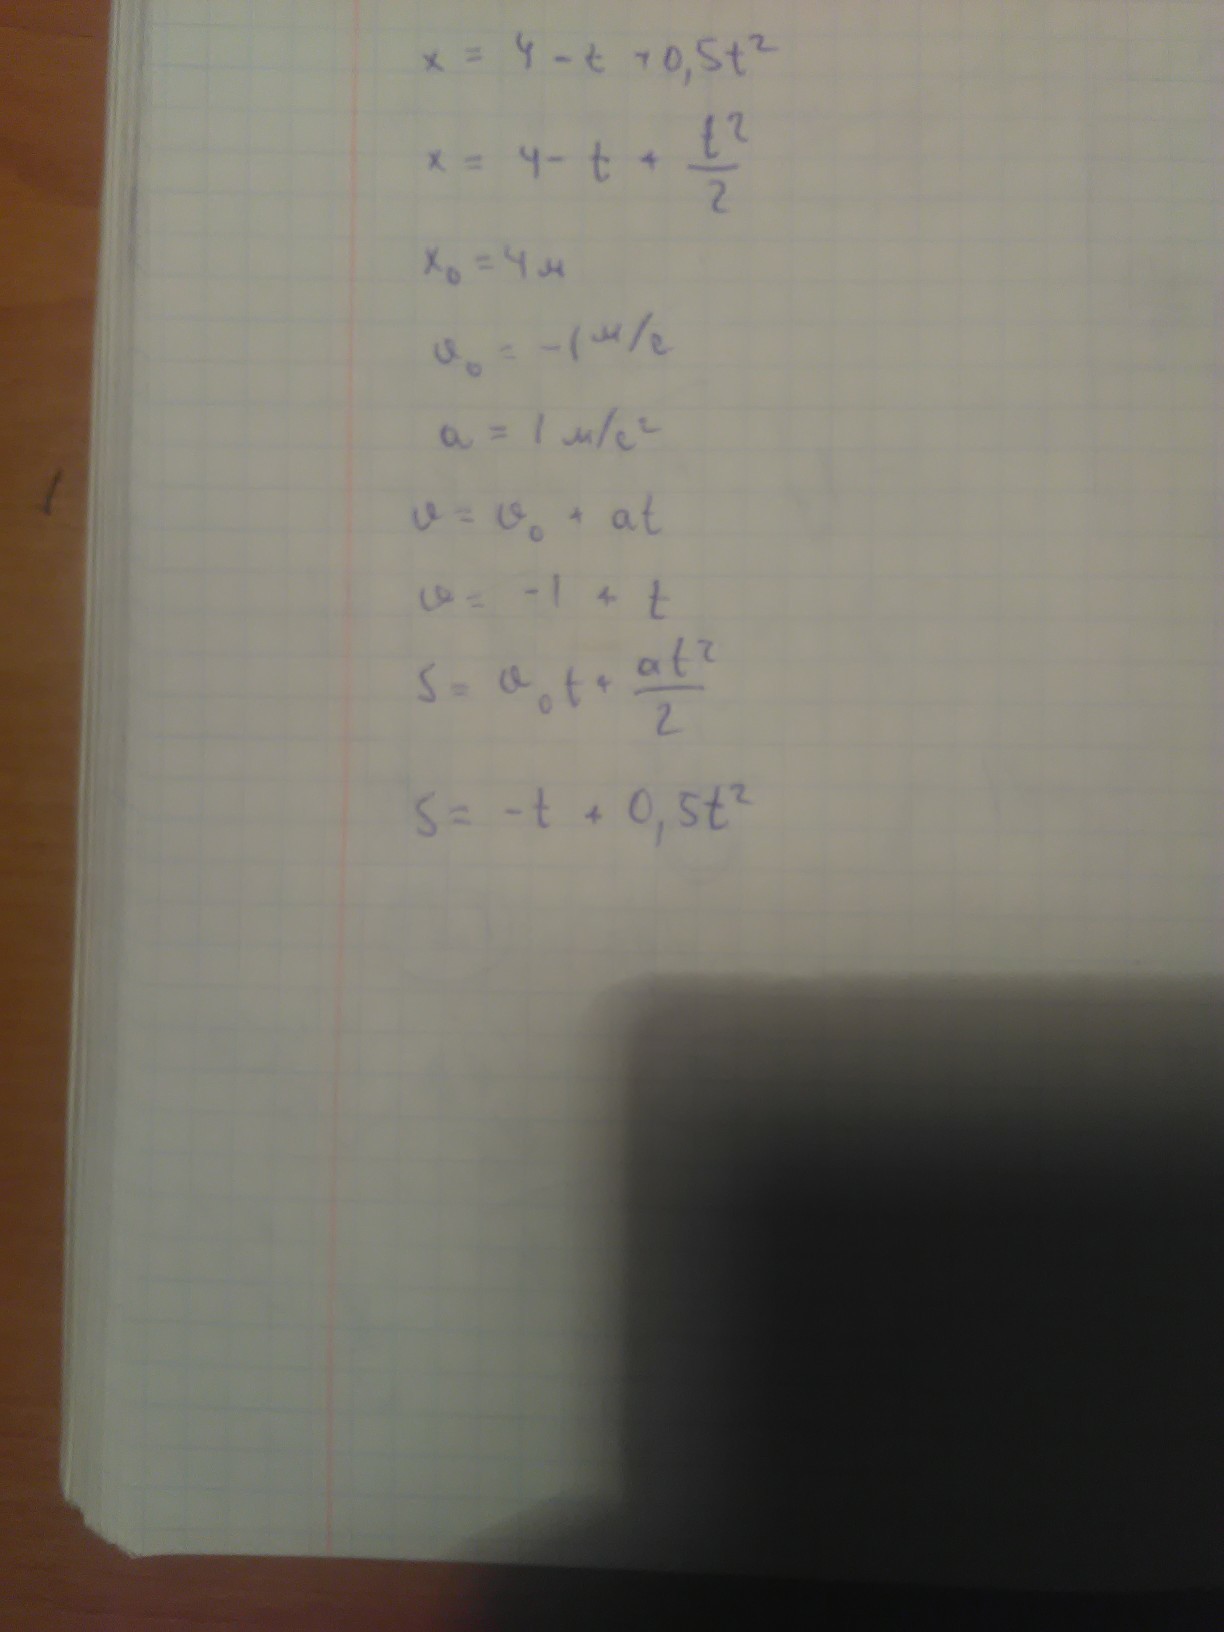 x = 4 - t + 0,5t²
x = 4 - t + t²/2
x₀ = 4 м
υ₀ = -1 м/с
a = 1 м/с²
υ = υ₀ + at
υ = -1 + t
S = υ₀t + at²/2
S = -t + 0,5t²